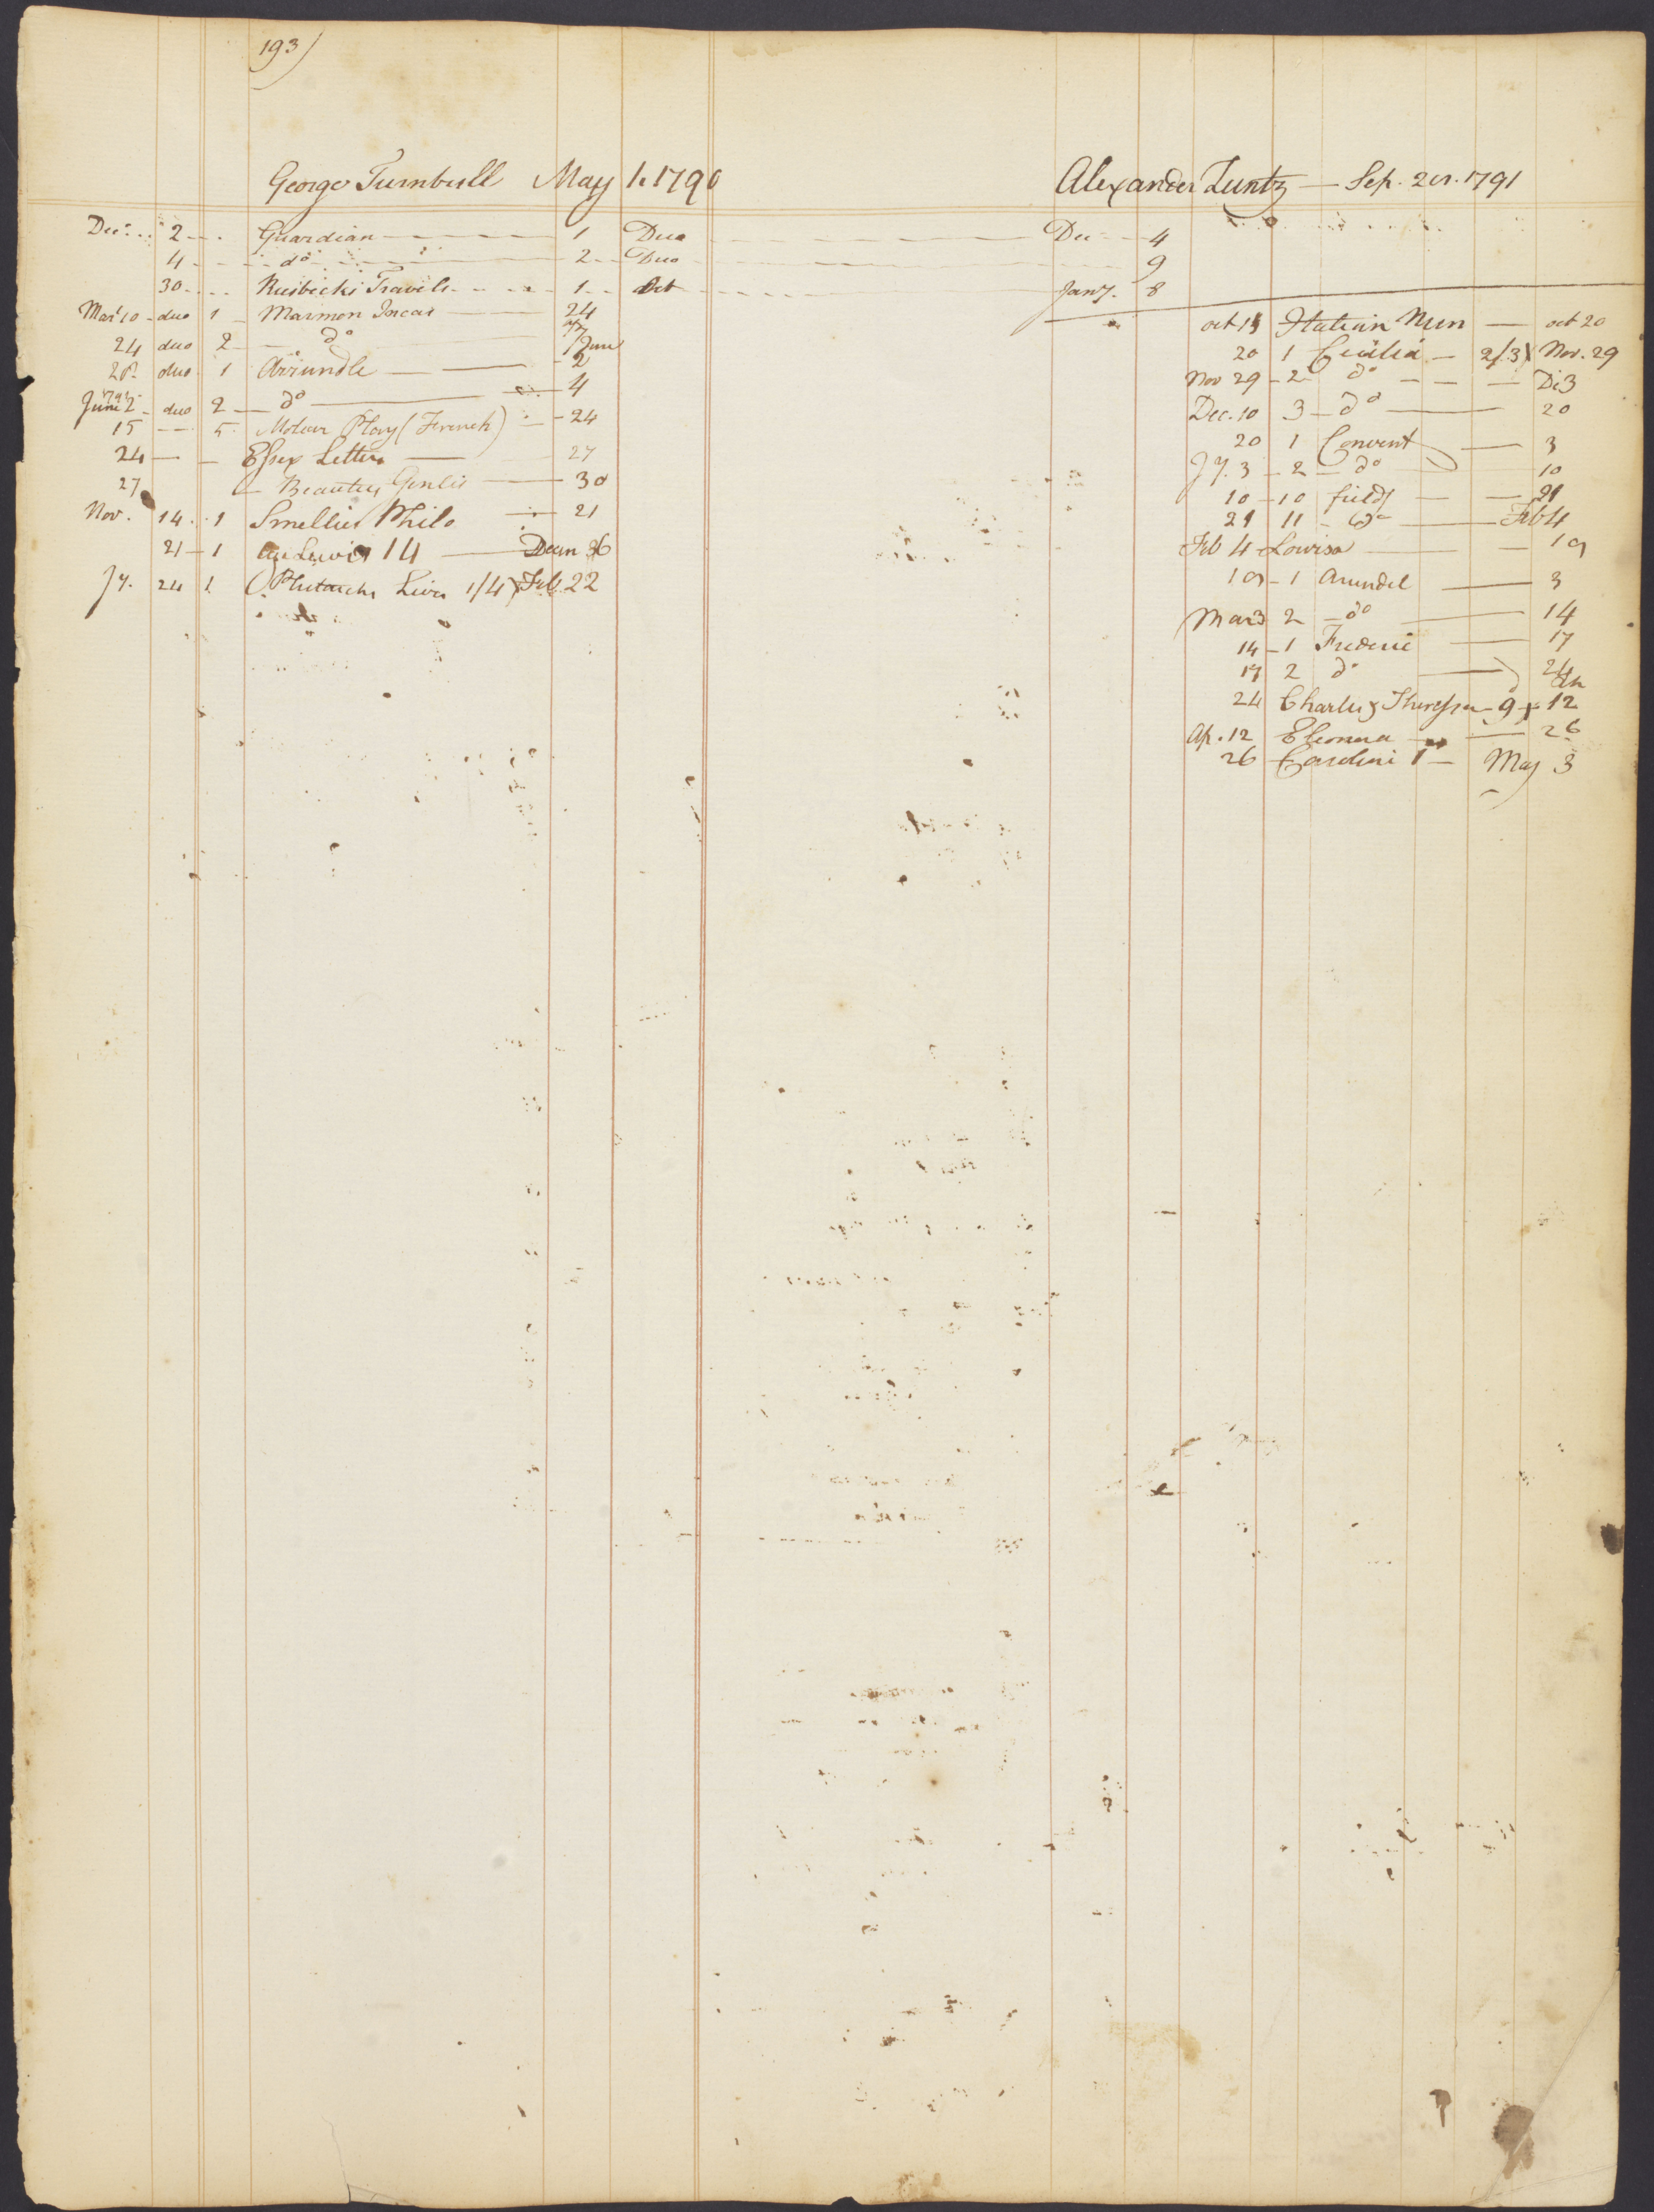 193)
George Turnbull May 1. 1790
Decr. 2 Guardian 1 Duo Dec 4
4 do 2 Duo 9
30 Travels 1 Oct Jany. 8
Mar 10 duo 1 Marmon Incas 24
24 duo 2 do 7 June
28 duo 1 Arrundle 2
1791 June 2 duo 2 do 4
15 5 Play (French) 24
24 Essex Letters 27
27 Beauties Genlis 30
Nov. 14 1 Smellies Philo 21
21 1 Lewis 14 26
Jy. 24 1 Plutarchs Lives 1/4 Feb. 22
Alexander Zuntz — Sep. 20. 1791
oct 15 Italian Nun — oct 20
20 1 Cecilia — 2/3) Nov. 29
Nov 29 — 2 do — De 3
Dec. 10 3 — do — 20
20 1 Convent — 3
Jy. 3 — 2 — do 10
10 — 10 fieldg — 21
21 11 — do — Feb 4
Feb 4 Lowisa — 10
10 — 1 Arundel — 3
Mar 3 2 — do — 14
14 — 1 Frederic — 17
17 2 do — 24
24 Charles & — 9 + 12
Ap. 12 Eleonora — 26
26 Caroline 1 — May 3